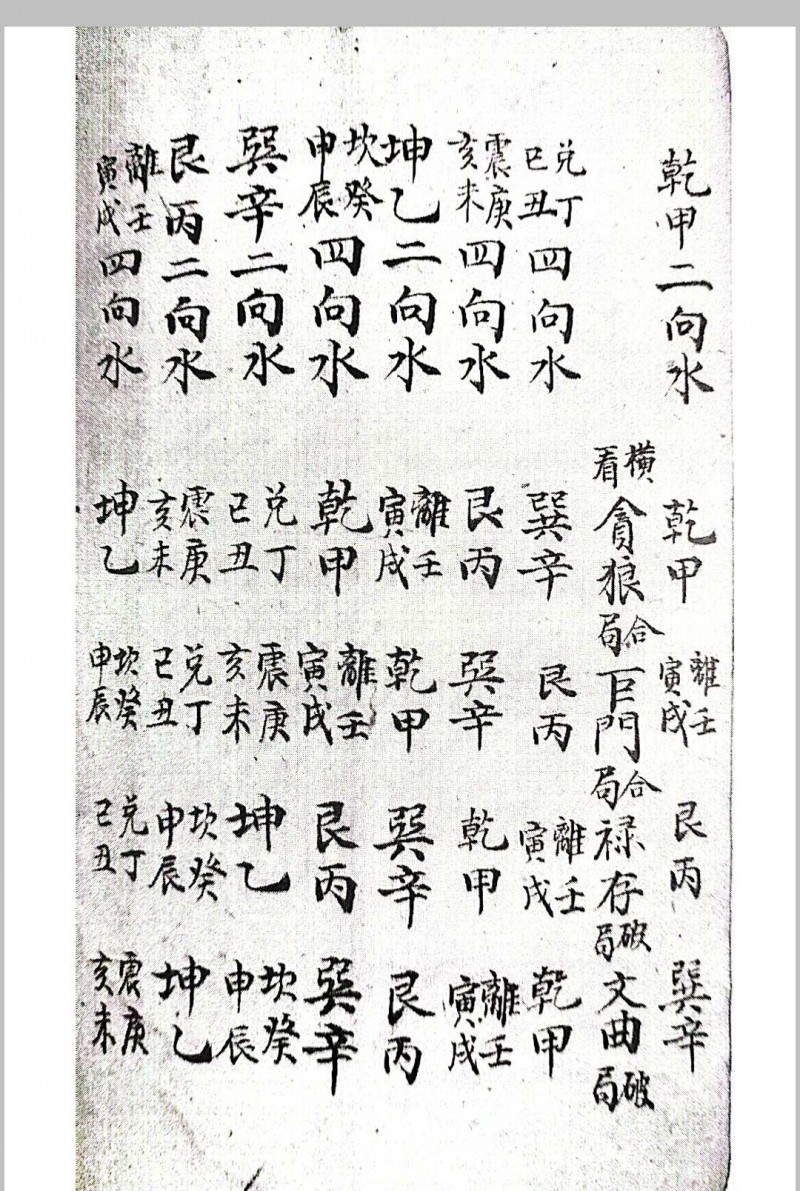 乾甲二向水 乾甲 離壬寅戌 艮丙 巽辛
橫看 貪狼合局 巨門合局 禄存破局 文曲破局
兌丁巳丑四向水 巽辛 艮丙 離壬寅戌 乾甲
震庚亥未四向水 艮丙 巽辛 乾甲 離壬寅戌
坤乙二向水 離壬寅戌 乾甲 巽辛 艮丙
坎癸申辰四向水 乾甲 離壬寅戌 艮丙 巽辛
巽辛二向水 兌丁巳丑 震庚亥未 坤乙 坎癸申辰
艮丙二向水 震庚亥未 兌丁巳丑 坎癸申辰 坤乙
離壬寅戌四向水 坤乙 坎癸申辰 兌丁巳丑 震庚亥未